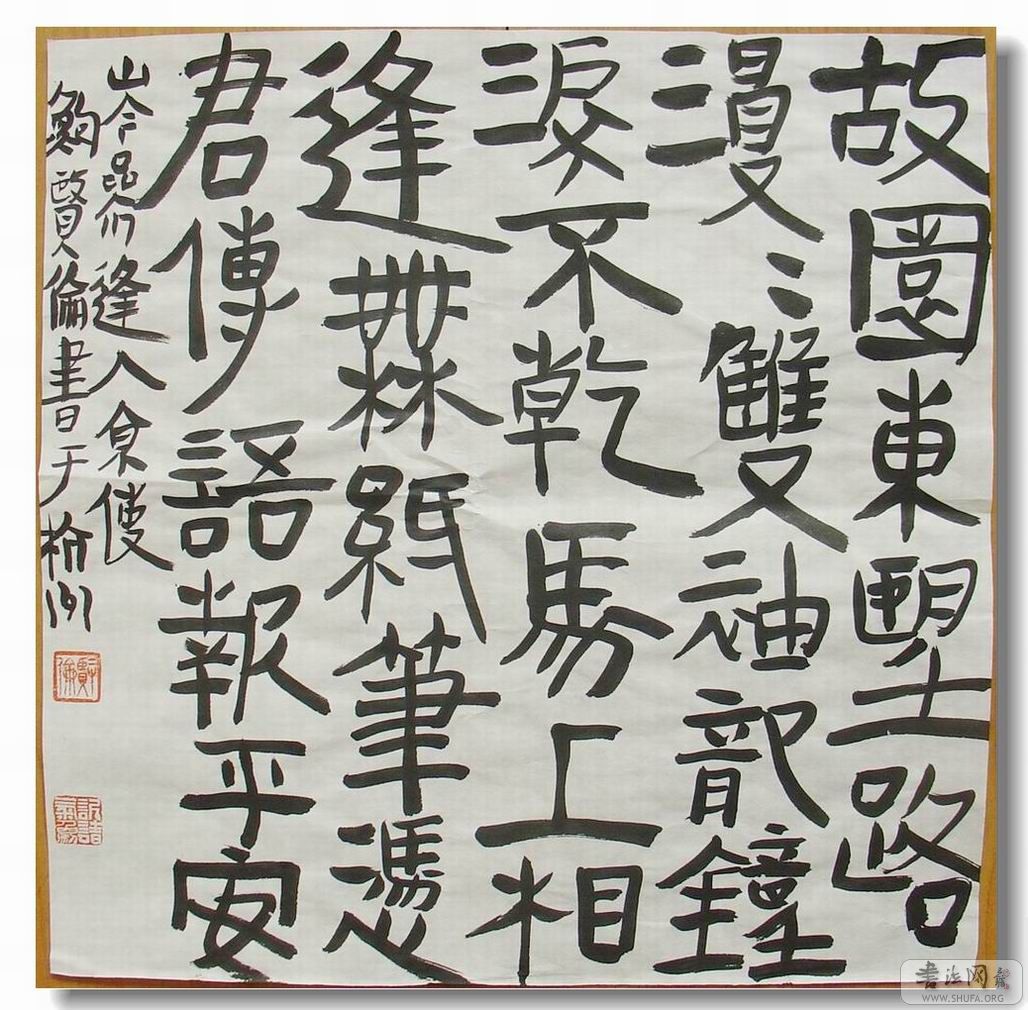 故園東望路
漫〻雙袖龍鐘
淚不乾馬上相
逢無紙筆憑
君傳語報平安
岑參逢入京使
鮑賢倫書于
賢倫
书法网
WWW.SHUFA.ORG